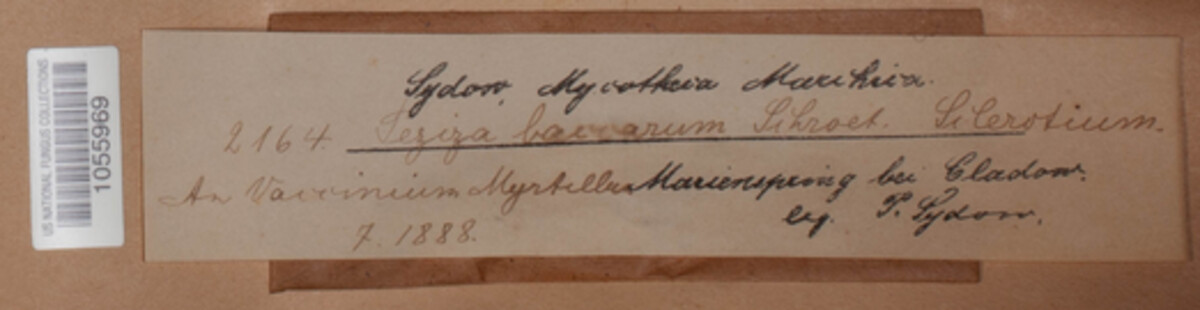 US NATIONAL FUNGUS COLLECTIONS
1055969
Sydow, Mycotheca Marchica.
2164. Peziza baccarum Schroet. Sclerotium.
An Vaccinium Myrtillus Marienspring bei Cladow.
7. 1888. leg. P. Sydow.